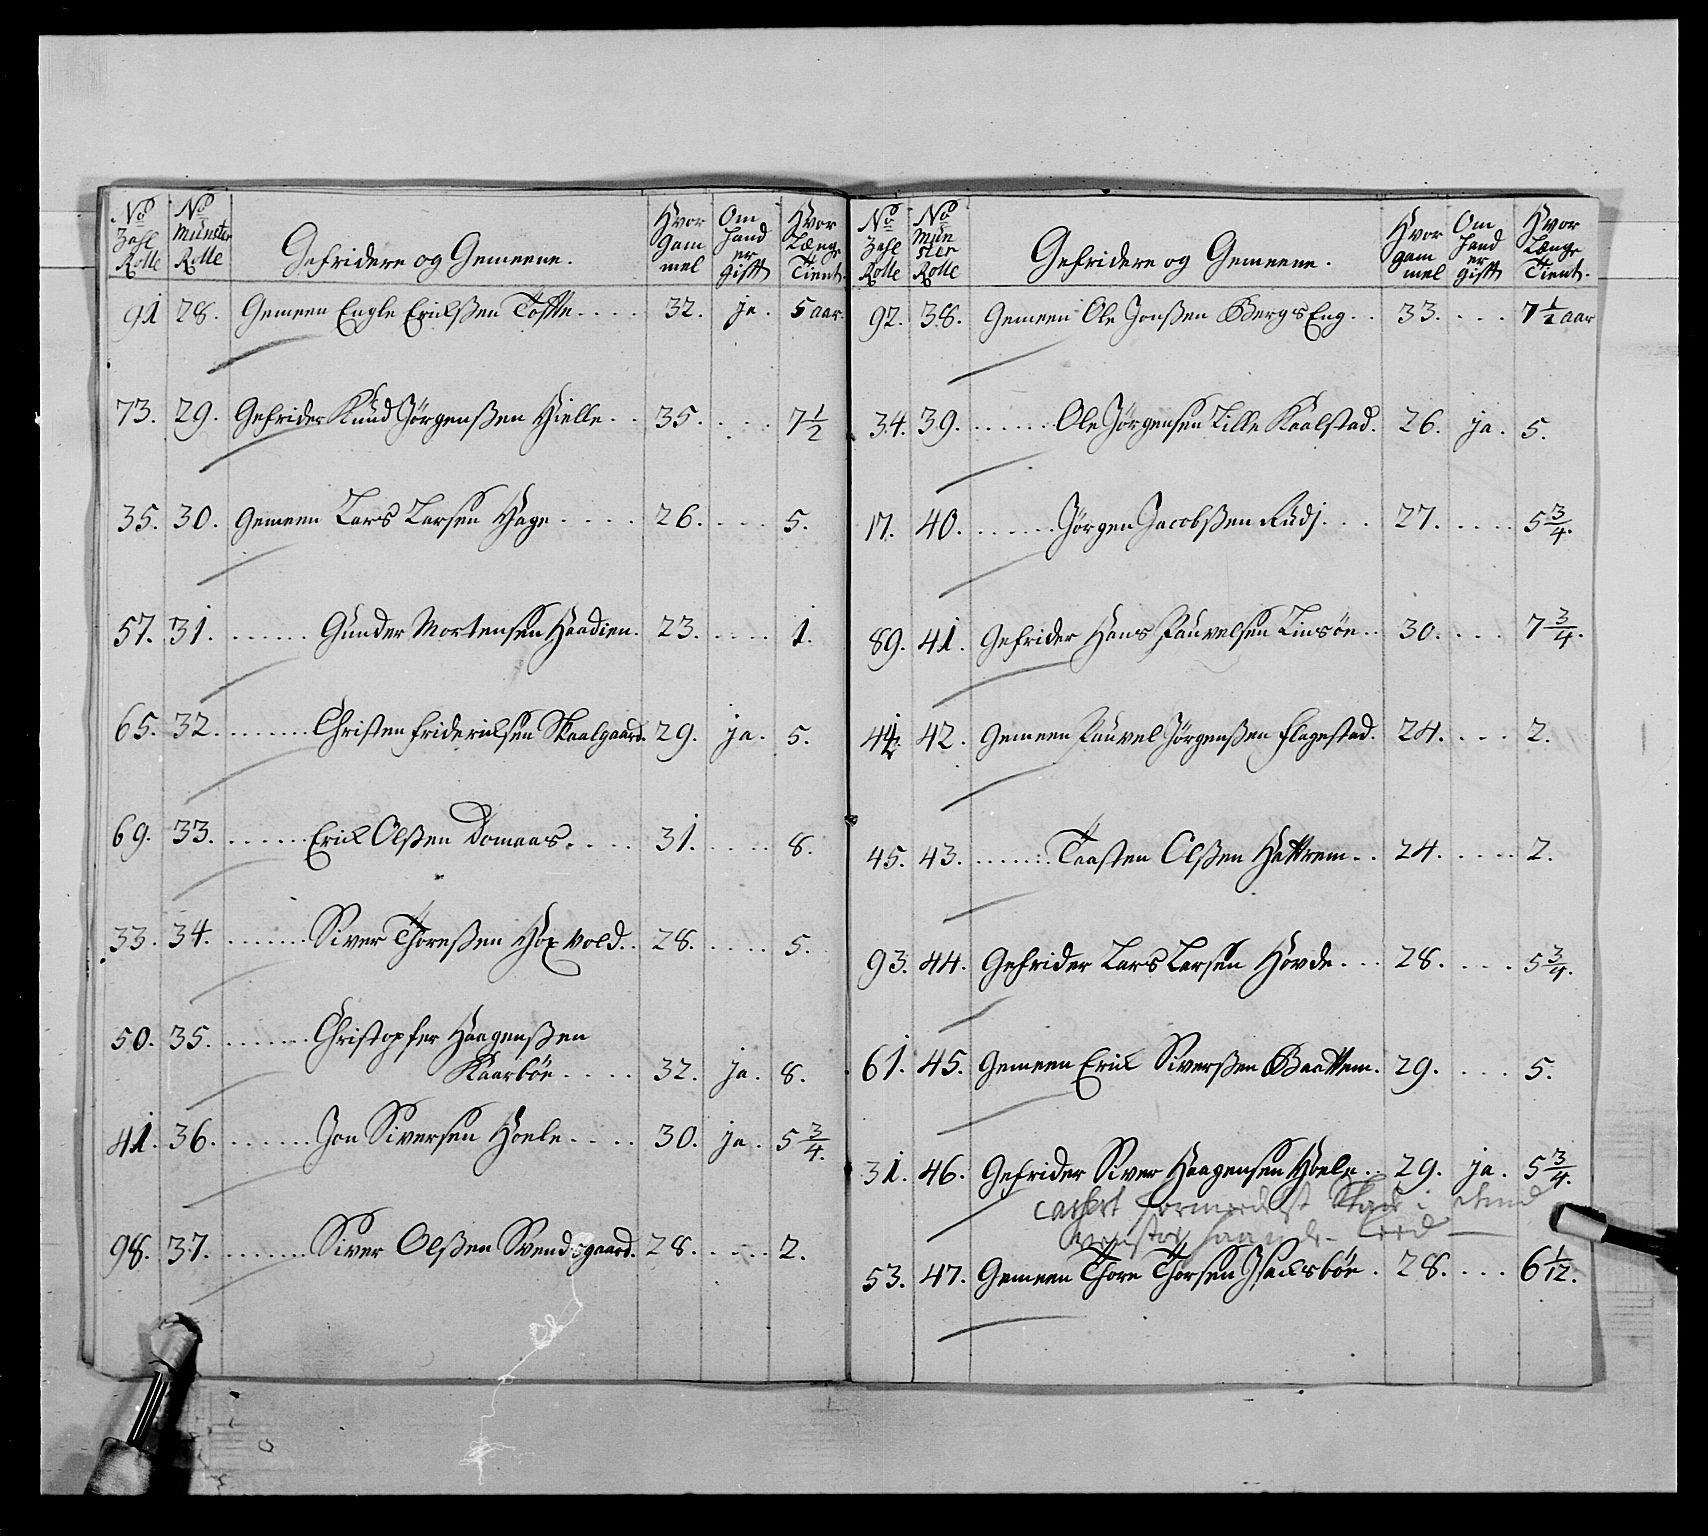 No Zahl Rolle | No Munster Rolle | Gefridere og Gemeene. | Hvor gammel | Om hand er gifft | Hvor Længe Tient.
91 28. Gemeen Engle Erichsen Tofte.... 32. ja. 5 aar.
73. 29. Gefrider Knud Jørgenßen Hielle.. 35. .... 7 1/2
35. 30. Gemeen Lars Larsen Hage.... 26. .... 5.
57. 31. ...... Gunder Mortensen Haadien. 23. .... 1.
65. 32. ...... Christen Friderichsen Skaalgaard. 29. ja. 5.
69. 33. ...... Erich Olßen Domaas.... 31. .... 8.
33. 34. ...... Siver Thoreßen Hoxvold.. 28. .... 5.
50. 35. ...... Christopfer Haagenßen
Kaarbøe.... 32. ja. 8.
41. 36. ...... Jon Siversen Hoele.... 30. ja. 5 3/4.
98. 37. ...... Siver Olßen Svendsgaard. 28. .... 2.
No Zahl Rolle | No Munster Rolle | Gefridere og Gemeene. | Hvor gammel | Om hand er gifft | Hvor Længe Tient.
92. 38. Gemeen Ole Jonßen Bergs Eng.. 33. .... 7 1/2 aar
34. 39. ...... Ole Jørgensen Lille Kaalstad. 26. ja. 5.
17. 40. ...... Jørgen Jacobßen Rudj... 27. .... 5 3/4.
89. 41. Gefrider Hans Pauvelsen Linsøe.. 30. .... 7 3/4.
42. Gemeen Pauvel Jørgenßen Flagestad. 24. .... 2.
45. 43. ...... Taasten Olßen Hattrem.. 24. .... 2.
93. 44. Gefrider Lars Larsen Hovde... 28. .... 5 3/4.
61. 45. Gemeen Erich Siverßen Baattem. 29. .... 5.
31. 46. Gefrider Siver Haagensen Hoele.. 29. ja. 5 3/4.
formedelst Skade i
53. 47. Gemeen Thore Thorsen Isachsbøe. 28. .... 6 1/12.